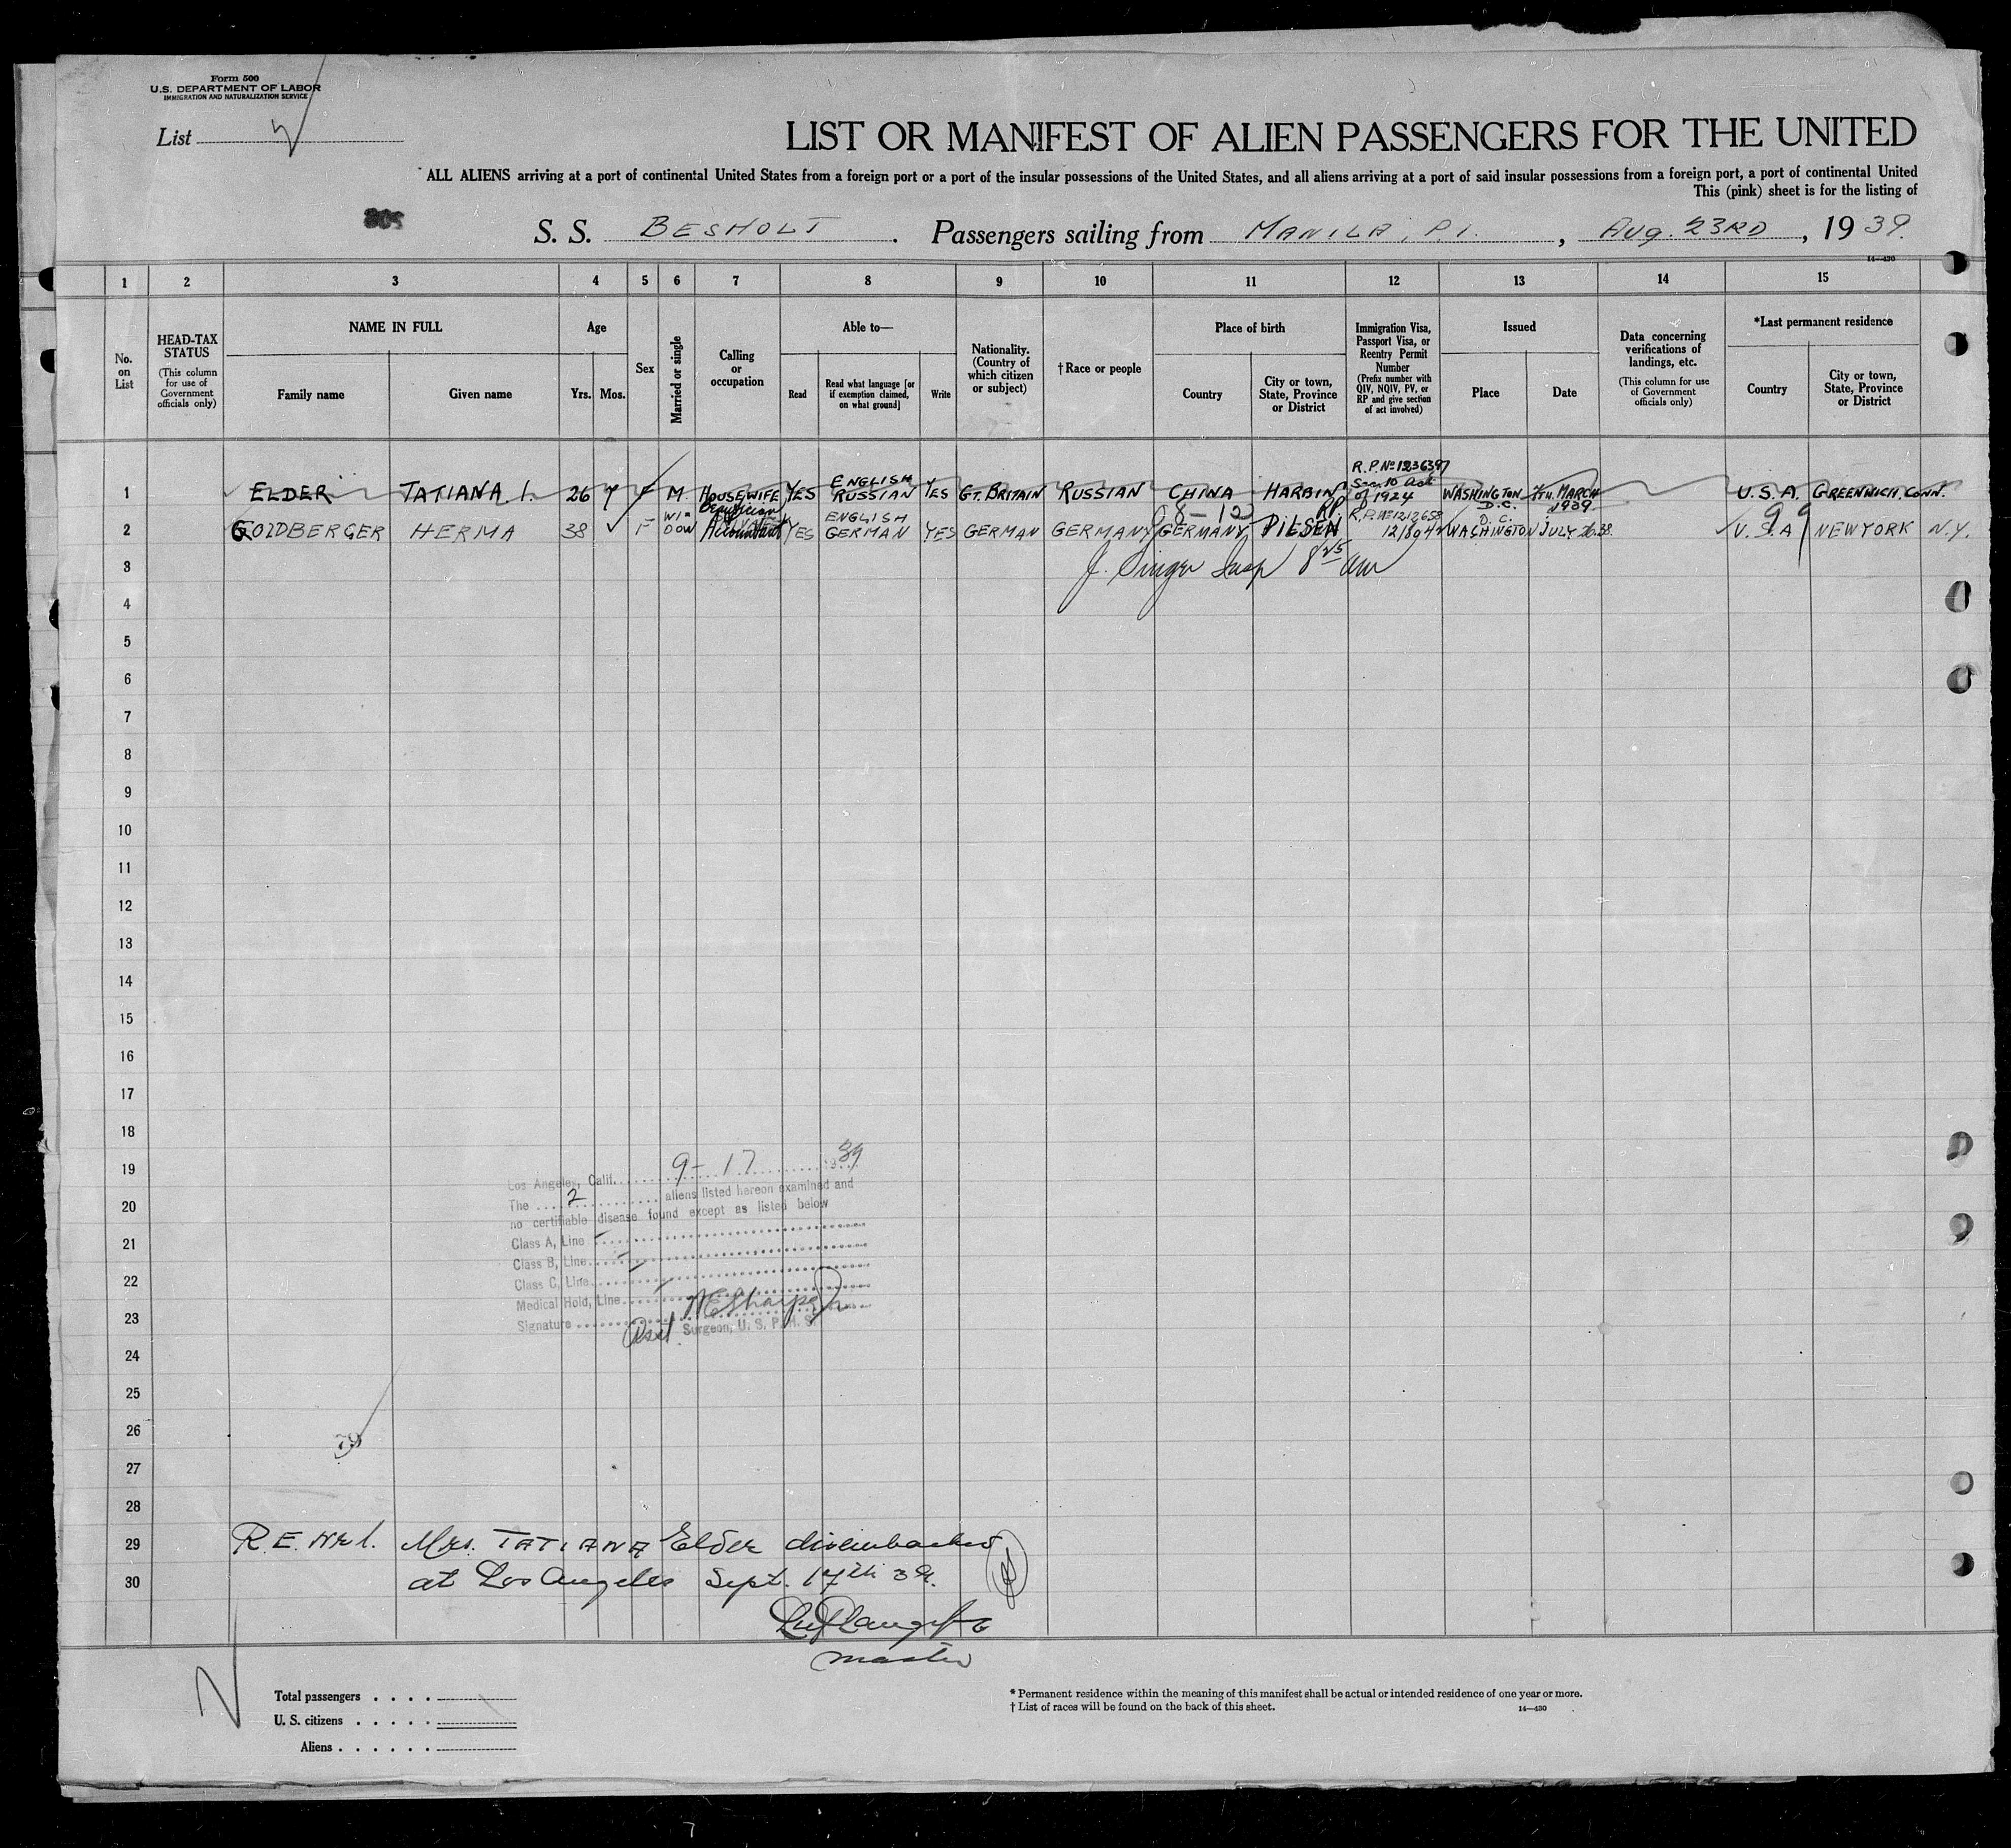 Form 500
U.S. DEPARTMENT OF LABOR
IMMIGRATION AND NATURALIZATION SERVICE
List
LIST OR MANIFEST OF ALIEN PASSENGERS FOR THE UNITED
ALL ALIENS arriving at a port of continental United States from a foreign port or a port of the insular possessions of the United States, and all aliens arriving at a port of said insular possessions from a foreign port, a port of continental United
This (pink) sheet is for the listing of
S. S. BESHOLT. Passengers sailing from MANILA, P.I., Aug. 23RD, 1939.
14—430
1 2 3 4 5 6 7 8 9 10 11 12 13 14 15
No. on List
HEAD-TAX STATUS (This column for use of Government officials only)
NAME IN FULL
Family name Given name
Age
Yrs. Mos.
Sex
Married or single
Calling or occupation
Able to—
Read Read what language [or if exemption claimed, on what ground] Write
Nationality. (Country of which citizen or subject)
† Race or people
Place of birth
Country City or town, State, Province or District
Immigration Visa, Passport Visa, or Reentry Permit Number (Prefix number with QIV, NQIV, PV, or RP and give section of act involved)
Issued
Place Date
Data concerning verifications of landings, etc. (This column for use of Government officials only)
*Last permanent residence
Country City or town, State, Province or District
1 ELDER TATIANA. I. 26 7 F M. HOUSEWIFE YES ENGLISH RUSSIAN YES GT. BRITAIN RUSSIAN CHINA HARBIN R.P. No 1236397 Sec. 10 Act of 1924 WASHINGTON D.C. 7TH. MARCH 1939. U.S.A. GREENWICH, CONN.
2 GOLDBERGER HERMA 38 F WIDOW Accountant YES ENGLISH GERMAN YES GERMAN GERMANY GERMANY PILSEN R.P. No 1212658 WASHINGTON D.C. JULY 26.38. U.S.A NEWYORK N.Y.
3 J. Singer Insp 8 25 am
4
5
6
7
8
9
10
11
12
13
14
15
16
17
18
19
20
21
22
23
24
25
26
27
28
29
30
Los Angeles, Calif. 9-17 1939
The 2 aliens listed hereon examined and
no certifiable disease found except as listed below
Class A, Line
Class B, Line
Class C, Line
Medical Hold, Line
Signature
Asst. Surgeon, U. S. P. H. S.
R.E. Nr 1. Mrs. TATIANA Elder disembarked
at Los Angeles Sept. 17th 39.
master
Total passengers
U. S. citizens
Aliens
* Permanent residence within the meaning of this manifest shall be actual or intended residence of one year or more.
† List of races will be found on the back of this sheet.
14—430